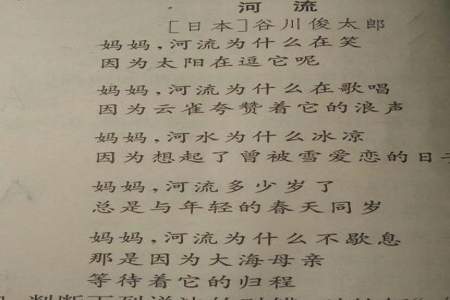 河 流
[日本]谷川俊太郎
妈妈,河流为什么在笑
因为太阳在逗它呢
妈妈,河流为什么在歌唱
因为云雀夸赞着它的浪声
妈妈,河水为什么冰凉
因为想起了曾被雪爱恋的日子
妈妈,河流多少岁了
总是与年轻的春天同岁
妈妈,河流为什么不歇息
那是因为大海母亲
等待着它的归程